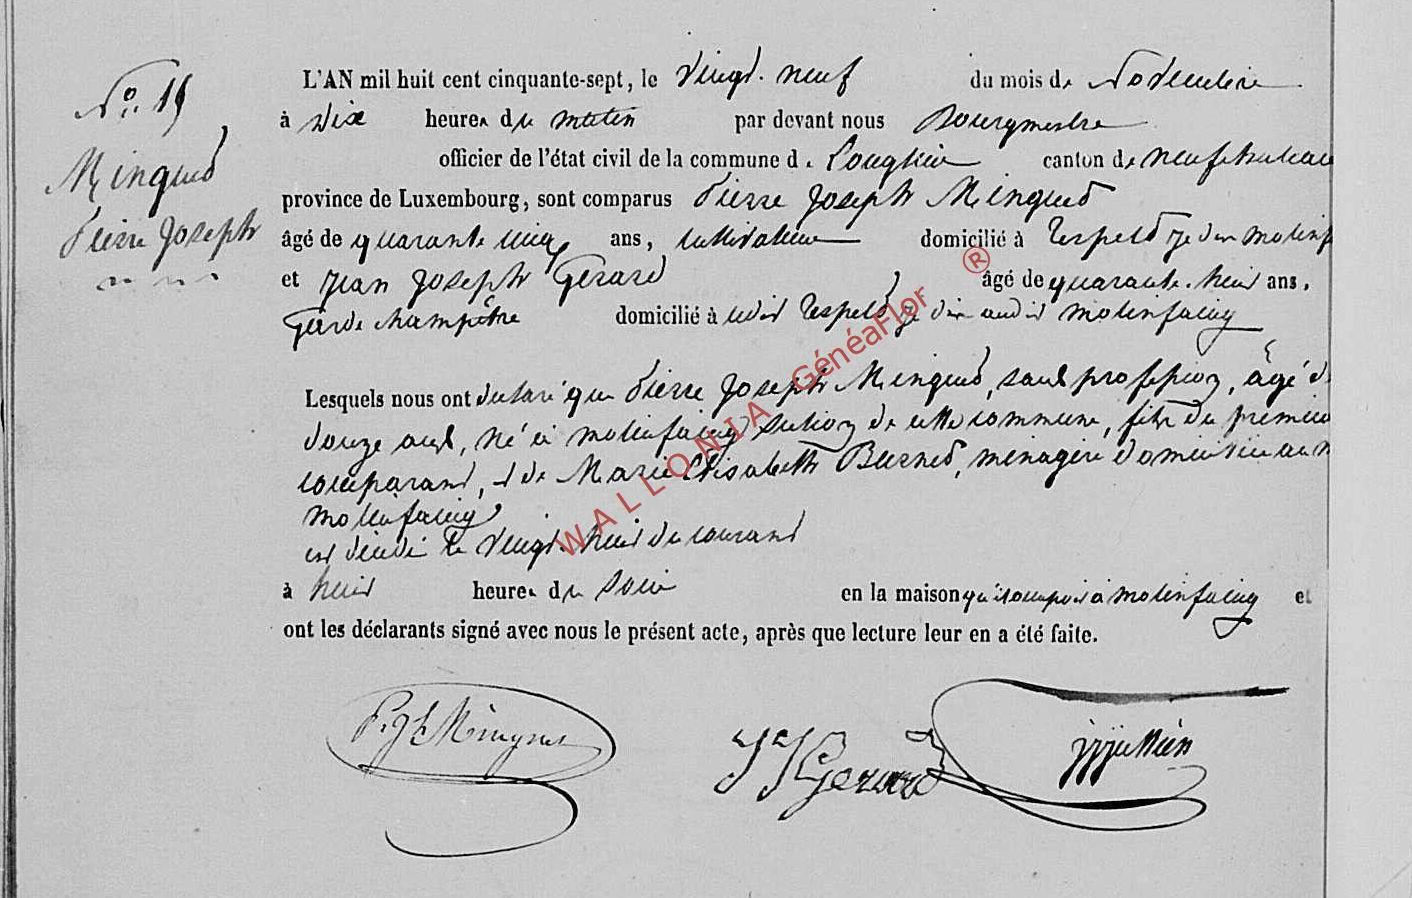 No. 19
Minguet
Pierre Joseph
L'AN mil huit cent cinquante-sept, le vingt-neuf du mois de Novembre
à dix heures du matin par devant nous Bourgmestre
officier de l'état civil de la commune de Longlier canton de neufchateau
province de Luxembourg, sont comparus Pierre Joseph Minguet
âgé de quarante cinq ans, cultivateur domicilié à
et Jean Joseph Gérard âgé de quarante-huit ans,
Garde champêtre domicilié à molinfaing
Lesquels nous ont déclaré que Pierre Joseph Minguet, sans profession, âgé d
douze ans, né à molinfaing section de cette commune, fils du premier
comparant, et de Marie Elisabeth Burnet, ménagère domiciliée au
molinfaing
est décédé le vingt-huit du courant
à huit heures du soir en la maison qu'il occupait à molinfaing et
ont les déclarants signé avec nous le présent acte, après que lecture leur en a été faite.
WALLONIA GénéaFlor ®
P. J. Minguet
JJ Gerard